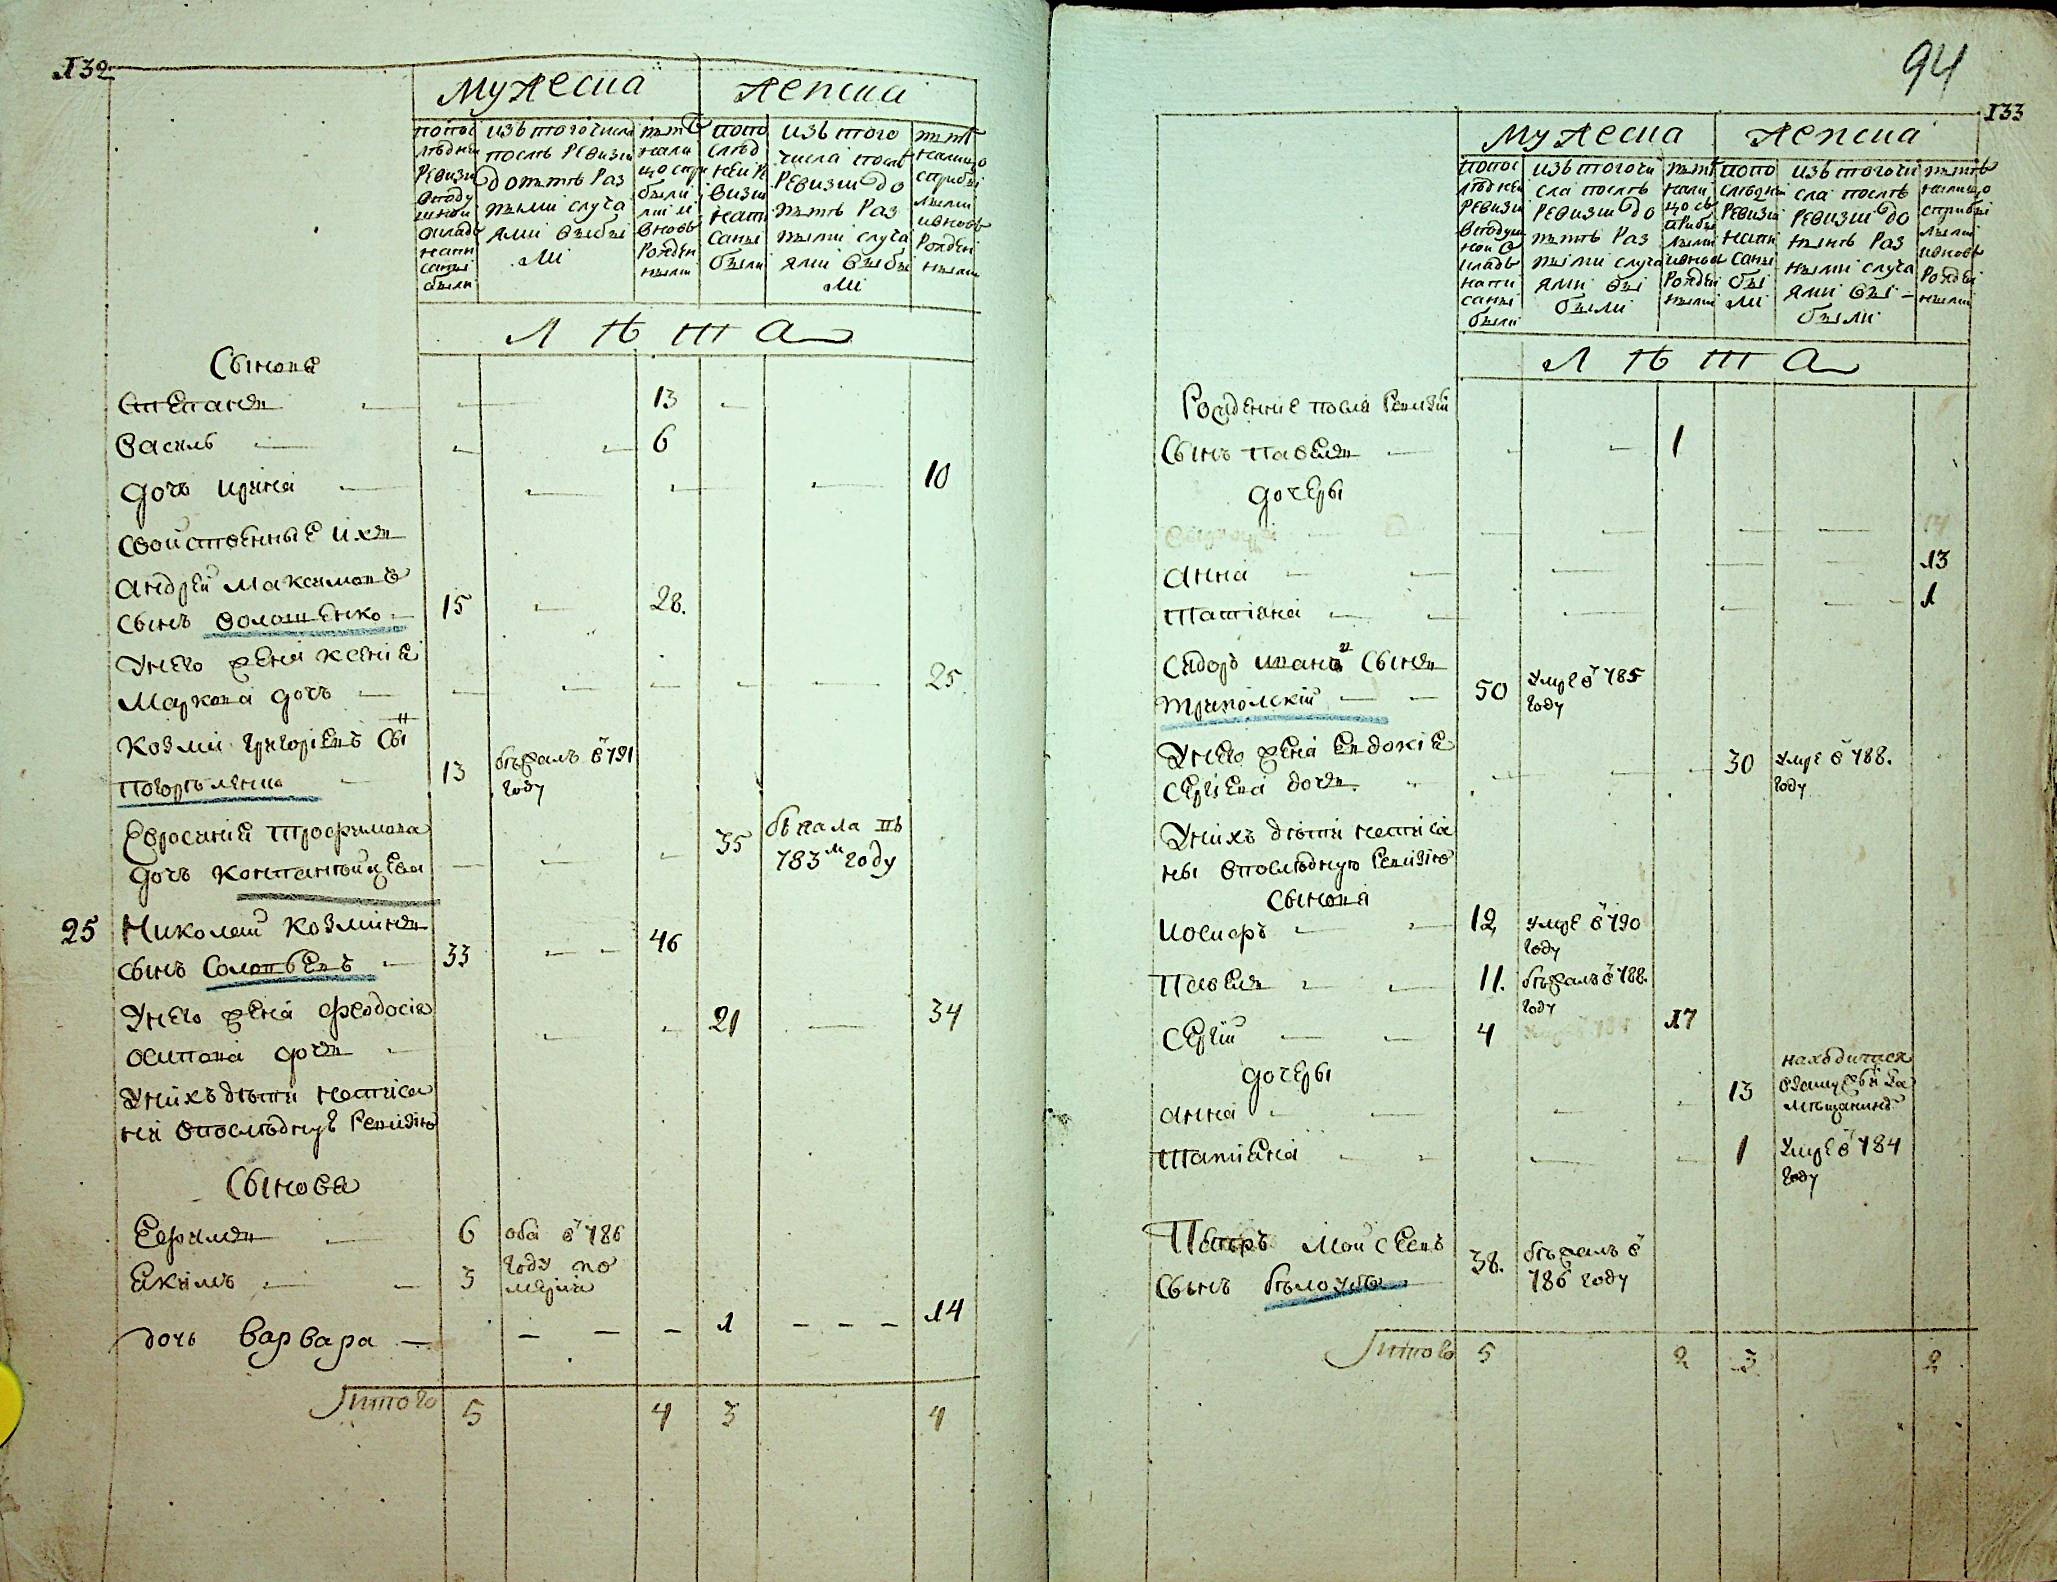 132
Мужеска Женска
попос
лѣдней
ревизи
в году
иной
складѣ
напи
саны
были
изъ того числа
послѣ ревизіи
до нынѣ раз
ными случа
ями выбы
ли
нынѣ
нали
цо при
были
вновь
рожден
ными
попо
слѣд
ней ре
визіи
напи
саны
были
изъ того
числа послѣ
ревизіи до
нынѣ раз
ными случа
ями выбы
ли
нынѣ
налицо
с прибы
лыми
и вновь
рожден
ными
Л ѣ т а
Сынова
Степанъ 13
Василь 6
дочь Ирина 10
Свойственные ихъ
Андрей Максимовъ
сынъ Волошенко 15 28.
У него жена Ксения
Маркова дочь 25
Козма Григориевъ сы н
Погорѣленко 13 бѣжалъ в 791
году
Евросиния Трофимова
дочь 35 бѣжала въ
783м году
25 Николай Козминъ
сынъ Соловьевъ 33 46
У него жена Феодосия
Осипова дочь 21 34
У нихъ дѣти написа
ни в послѣднуе ревизию
Сынова
Ефимъ 6 оба в 786
Якимъ 3 году по
мерли
дочь Варвара 1 14
Итого 5 4 3 4
94
133
Мужеска Женска
попос
лѣдней
ревизи
в году
ной с
кладѣ
напи
саны
были
изъ того чи
сла послѣ
ревизіи до
нынѣ раз
ными случа
ями вы
были
нынѣ
нали
цо съ
прибы
лыми
и вновь
рожден
ными
попо
слѣдней
ревизіи
напи
саны
бы
ли
изъ того чи
сла послѣ
ревизіи до
нынѣ раз
ными случа
ями вы-
были
нынѣ
налицо
с прибы
лыми
и вновь
рожден
ными
Л ѣ т а
Рожденние после ревизіи
Сынъ Павелъ 1
дочеры
Анна 13
Татіяна 1
Сидоръ Ивановъ сынъ
Трипольский 50 умре в 785
году
У него жена Евдокіе
Сергіева дочъ 30 умре в 788.
году
У нихъ дѣти написа
ны в послѣдную ревизію
Сынова
Иосифъ 12 умре в 790
году
Павелъ 11. бѣжалъ в 788.
году
Сергій 4 17
дочеры
Анна 13 находится
в замужевѣ за
мѣщанинѣ
Татіяна 1 умре в 784
году
Петръ Мойсеевъ
сынъ Бѣлоусъ 38. бѣжалъ в
786 году
Итого 5 2 3 2